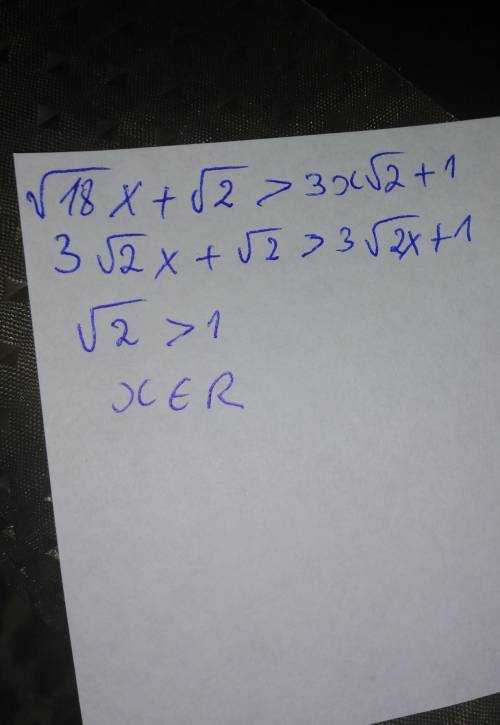 √18 x + √2 > 3x√2 + 1
3√2 x + √2 > 3√2x + 1
√2 > 1
x ∈ R